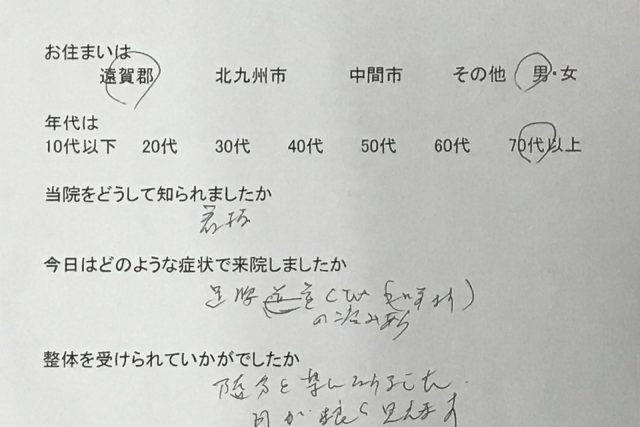 お住まいは
遠賀郡 北九州市 中間市 その他 男・女
年代は
10代以下 20代 30代 40代 50代 60代 70代以上
当院をどうして知られましたか
看板
今日はどのような症状で来院しましたか
足腰
の
整体を受けられていかがでしたか
随分と楽になりました.
目が良く見えます